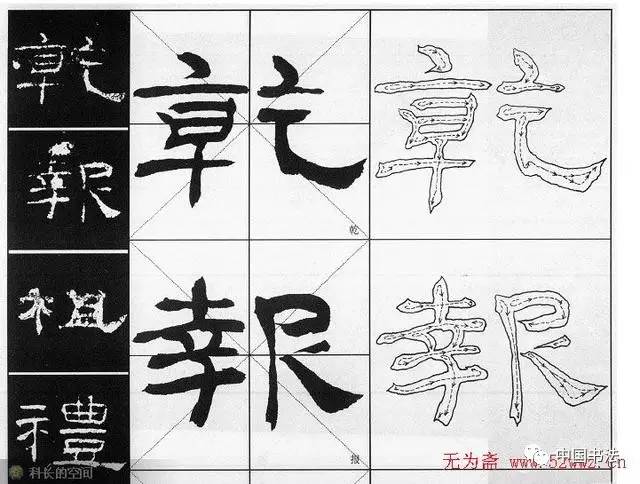 乾 乾 乾
乾
報 報 報
报
祖
禮
科长的空间
无为斋 www.52wwz.cn
中国书法